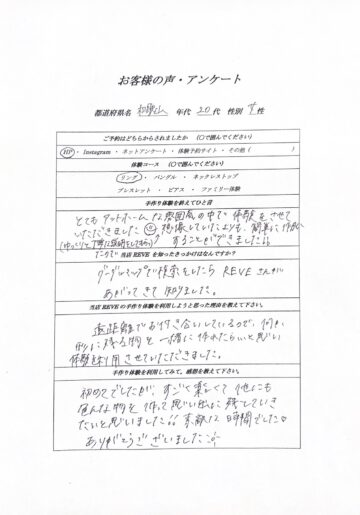 お客様の声・アンケート
都道府県名 和歌山 年代 20代 性別 女性
ご予約はどちらからされましたか (〇で囲んでください)
HP・Instagram・ネットアンケート・体験予約サイト・その他( )
体験コース (〇で囲んでください)
リング・バングル・ネックレストップ
ブレスレット・ピアス・ファミリー体験
手作り体験を終えてひと言
とてもアットホームな雰囲気の中で体験をさせて
いただきました 想像していたよりも、簡単に作成
(ゆっくりと丁寧な説明をしてもらっ することができました
たので)
当店 REVE を知ったきっかけはなんですか?
グーグルマップで検索をしたら REVE さんが
あがってきて知りました。
当店 REVE の手作り体験を利用しようと思った理由を教えて下さい。
遠距離でお付き合いしているので、何か
形に残る物を一緒に作れたらいいと思い
体験を利用させていただきました。
手作り体験を利用してみて、感想を教えて下さい。
初めてでしたが、すごく楽しくて他にも
色んな物を作って思い出に残していき
たいと思いました 素敵な時間でした
ありがとうございました